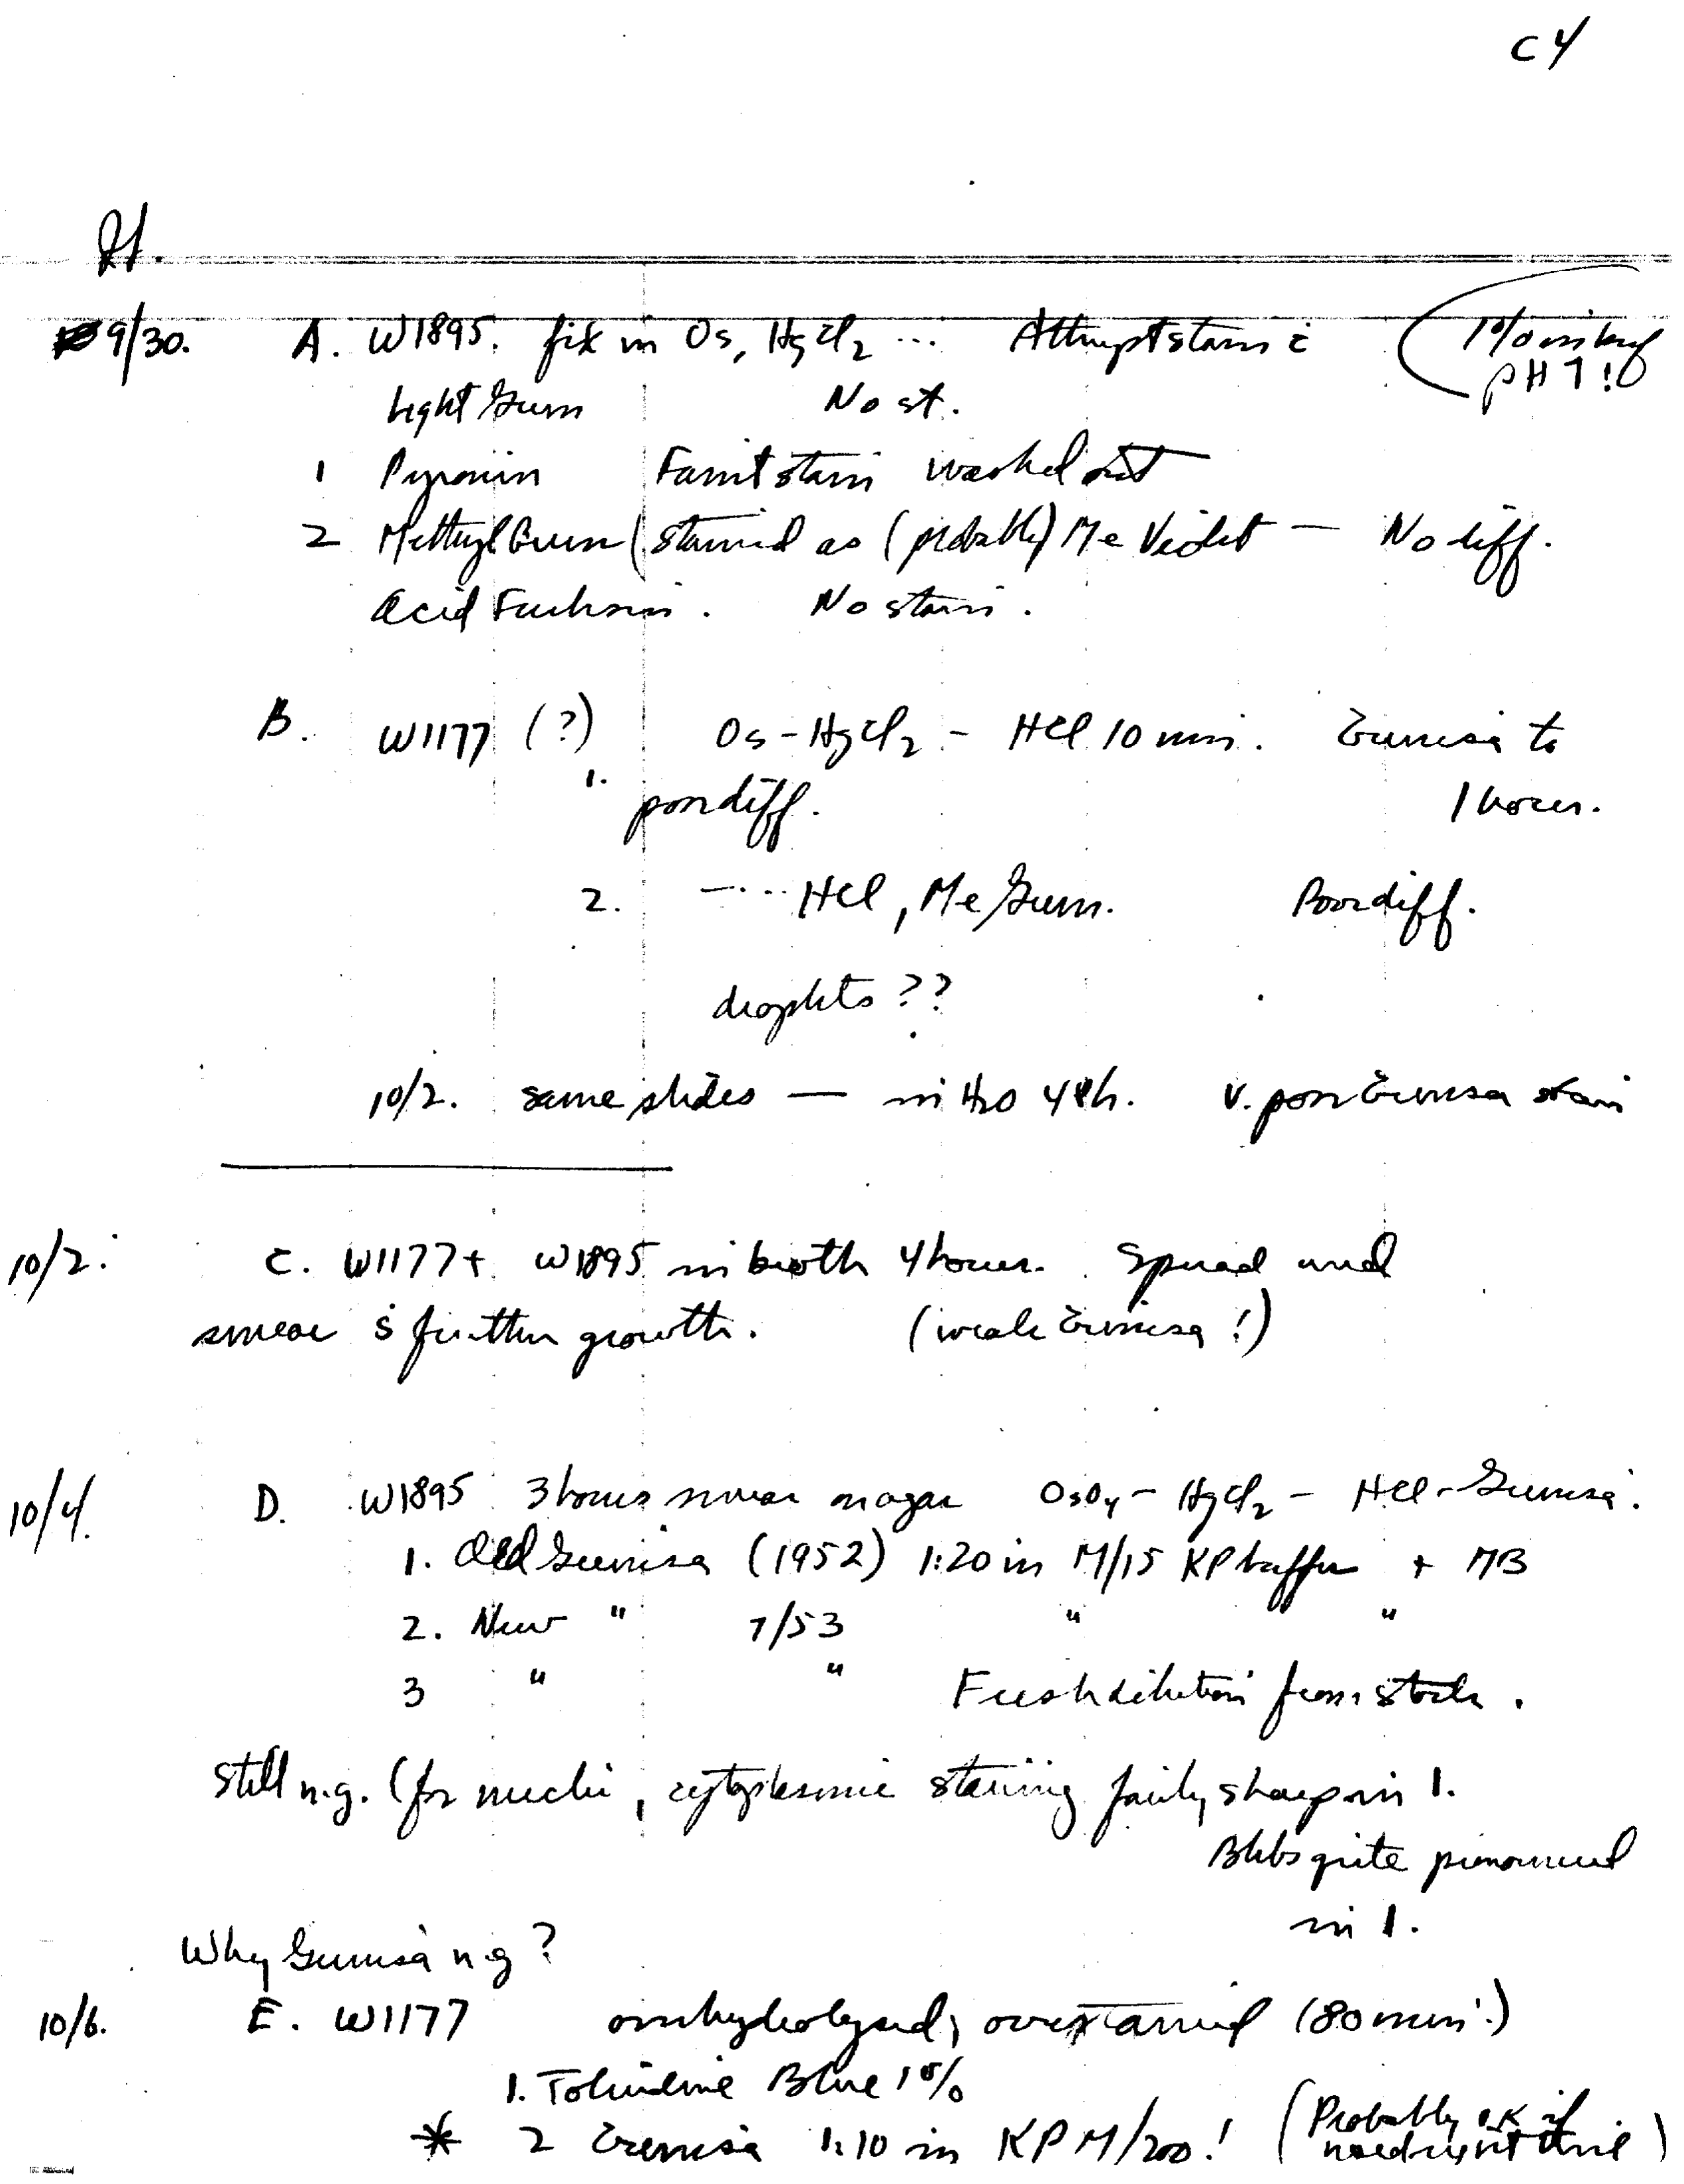 C4
9/30. A. W1895. fix in Os, HgCl2 ... Attempt stain c̄ (1% in buf
pH 7!)
Light Green No st.
1 Pyronin Faint stain washed out
2 Methyl Green (stained as (probably) Me Violet — No diff.
Acid Fuchsin. No stain.
B. W1177 (?) Os - HgCl2 - HCl 10 min. Giemsa to
1. poor diff. 1 hour.
2. —... HCl, Me Green. Poor diff.
droplets ??
10/2. same slides — in H2O 48h. v. poor Giemsa stain
10/2: C. W1177 + W1895 in broth 4 hours. Spread and
smear s̄ further growth. (weak Giemsa!)
10/4. D. W1895 3 hours smear on agar OsO4 - HgCl2 - HCl - Giemsa.
1. Old Giemsa (1952) 1:20 in M/15 KP buffer + MB
2. New " 7/53 " "
3 " " Fresh dilution from stock.
Still n.g. (for nuclei, cytoplasmic staining fairly sharp in 1.
Blebs quite pronounced
in 1.
Why Giemsa n.g?
10/6. E. W1177 overhydrolysed, overstained (80 min!)
1. Toluidine Blue 1%
* 2 Giemsa 1:10 in KP M/200! (Probably OK if
time)